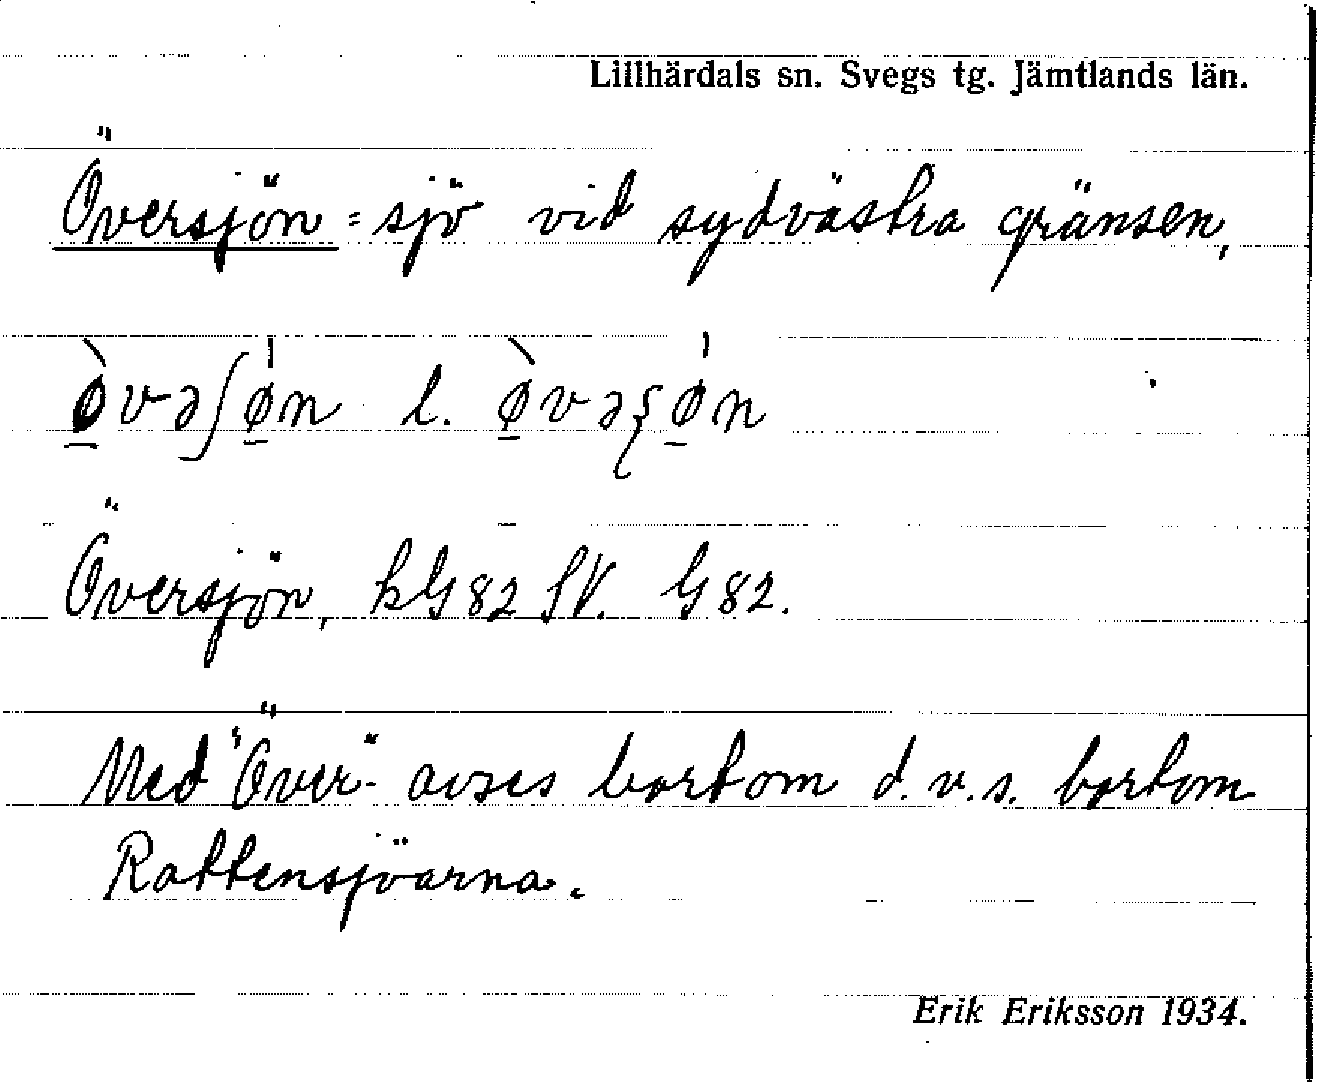 Lillhärdals sn. Svegs tg. Jämtlands län.
Översjön = sjö vid sydvästra gränsen,
ø̀vəʃøn l. ø̀vəʂøn
Översjön, kG82 SV. G82.
Med "Över-" avses bortom d.v.s. bortom
Rattensjöarna.
Erik Eriksson 1934.